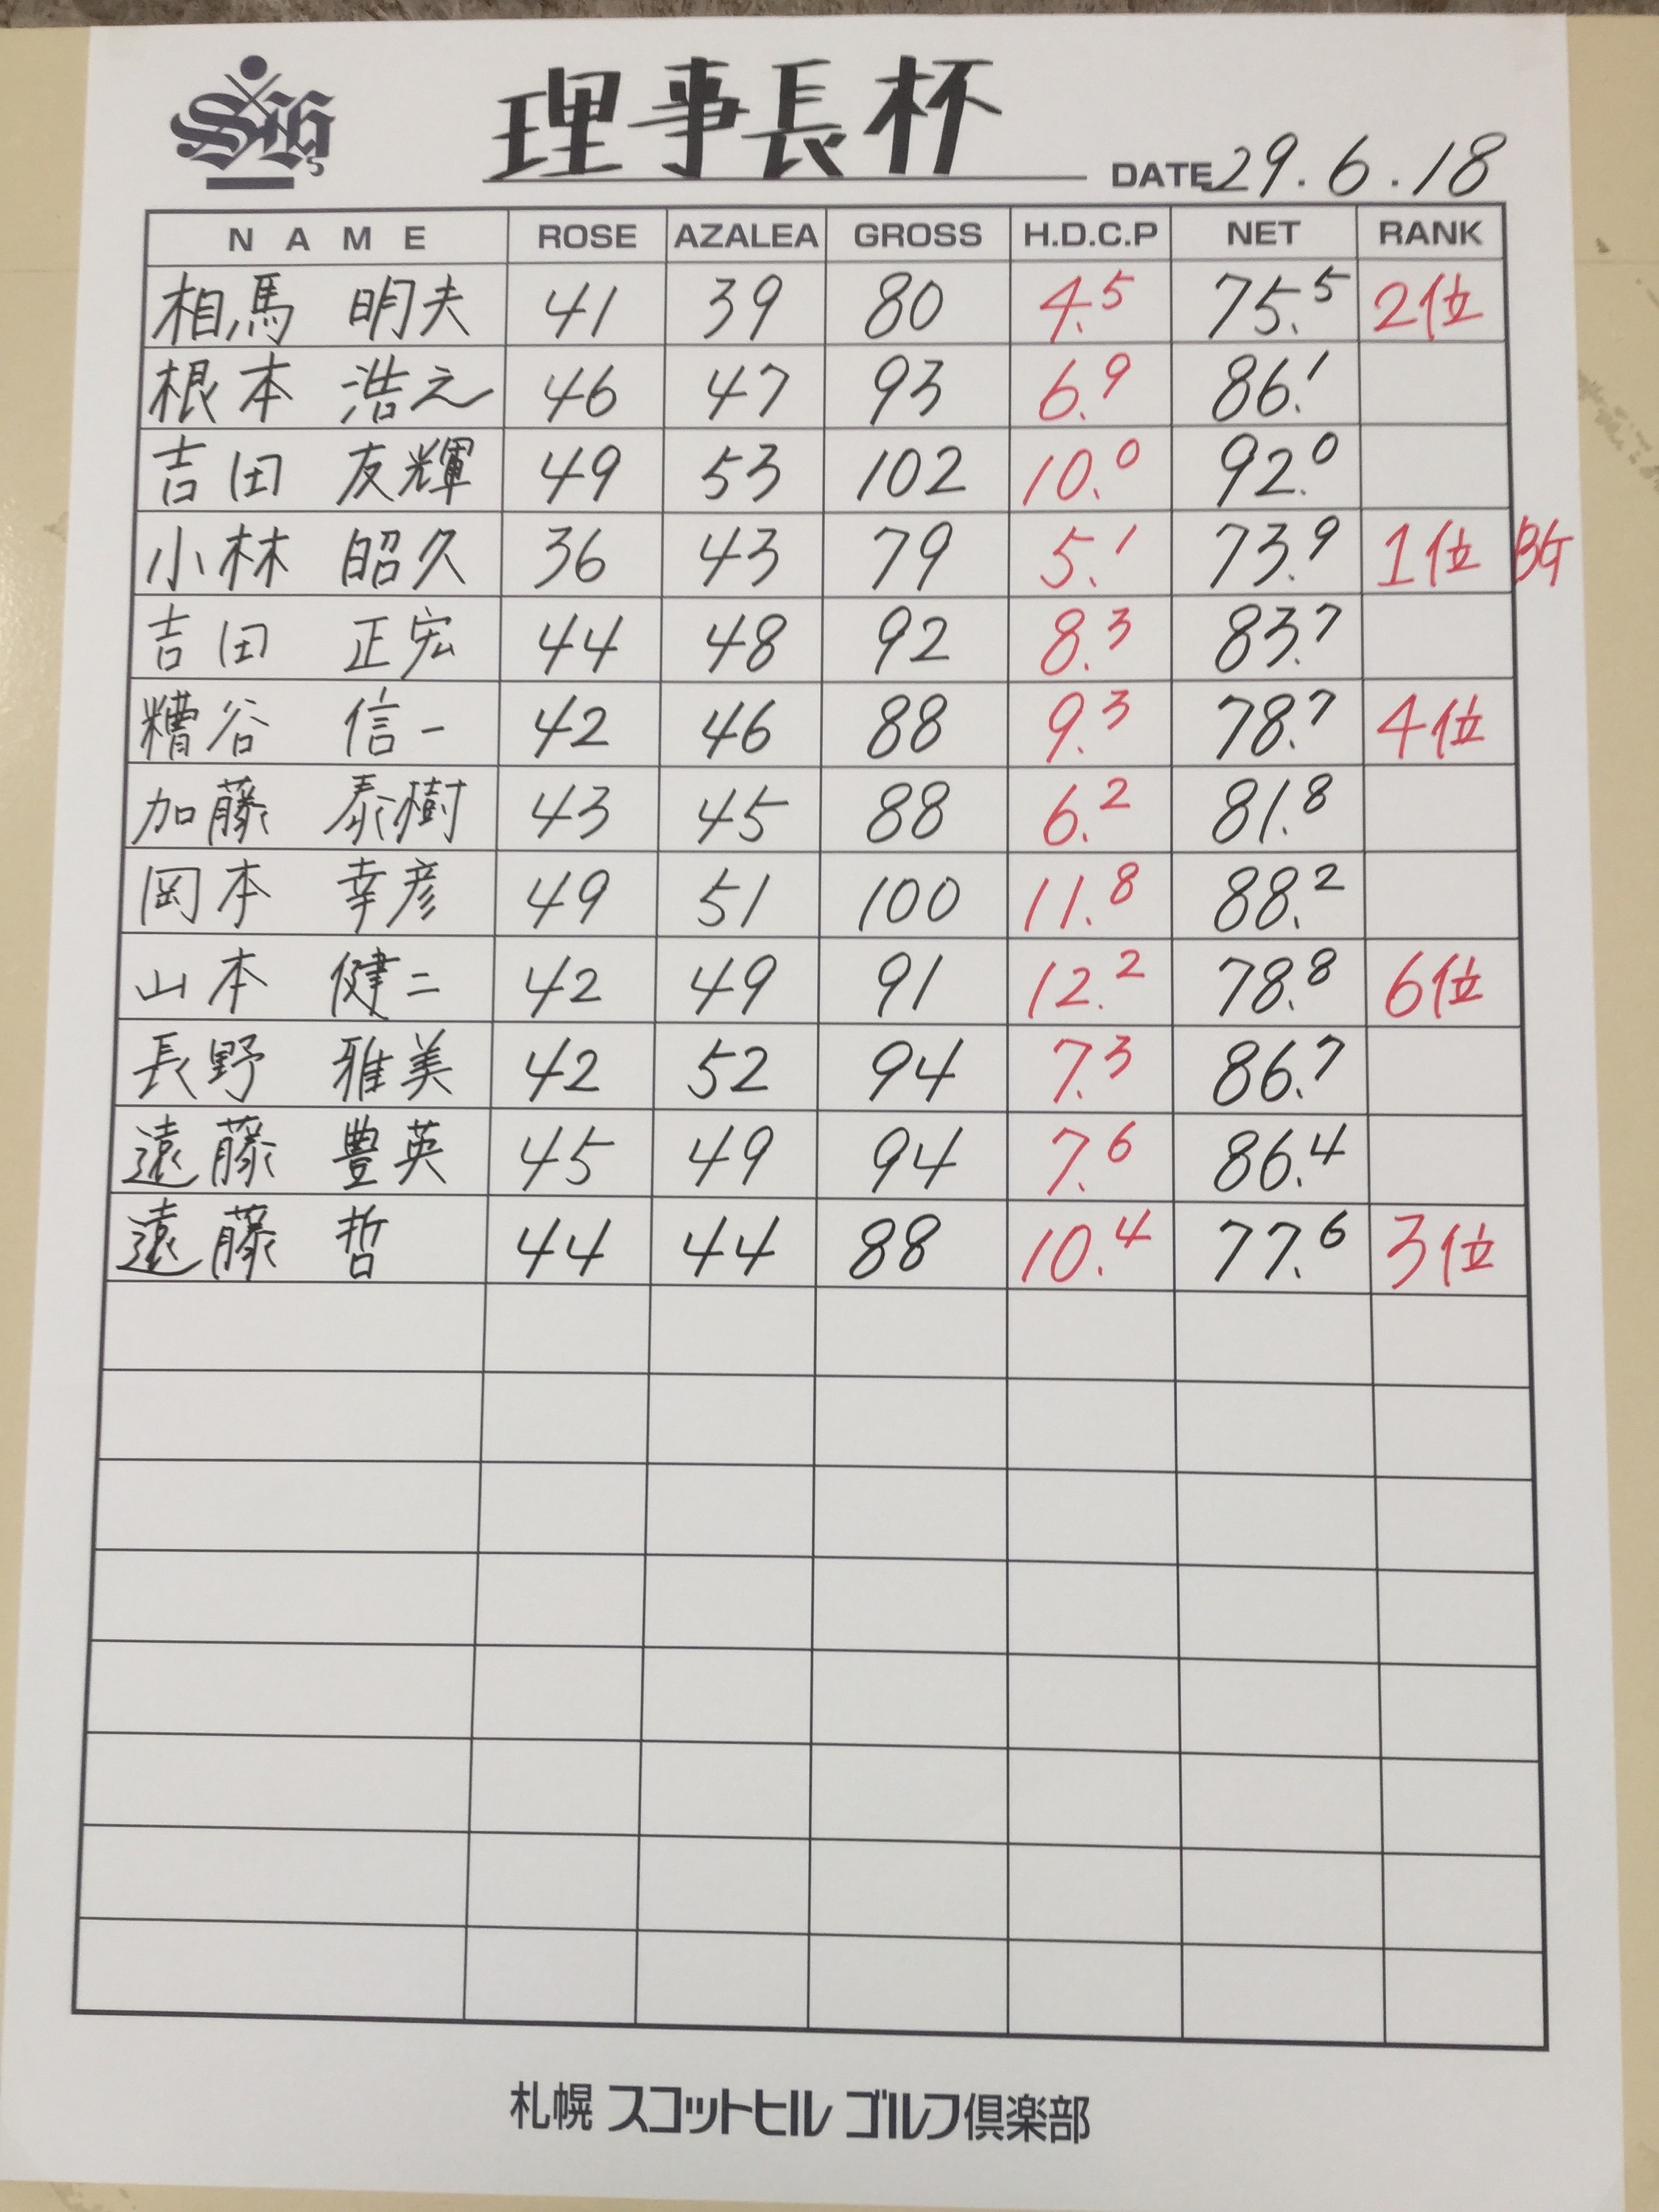 SHG
理事長杯
DATE 29.6.18
NAME ROSE AZALEA GROSS H.D.C.P NET RANK
相馬 明夫 41 39 80 4.5 75.5 2位
根本 浩之 46 47 93 6.9 86.1
吉田 友輝 49 53 102 10.0 92.0
小林 昭久 36 43 79 5.1 73.9 1位 BG
吉田 正宏 44 48 92 8.3 83.7
糟谷 信一 42 46 88 9.3 78.7 4位
加藤 泰樹 43 45 88 6.2 81.8
岡本 幸彦 49 51 100 11.8 88.2
山本 健二 42 49 91 12.2 78.8 6位
長野 雅美 42 52 94 7.3 86.7
遠藤 豊英 45 49 94 7.6 86.4
遠藤 哲 44 44 88 10.4 77.6 3位
札幌 スコットヒル ゴルフ倶楽部